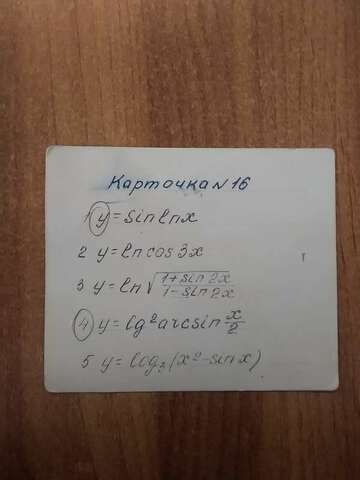 Карточка N 16
1 y = sin ln x
2 y = ln cos 3x
3 y = ln √(1 + sin 2x / 1 - sin 2x)
4 y = lg² arcsin x/2
5 y = log₃ (x² - sin x)